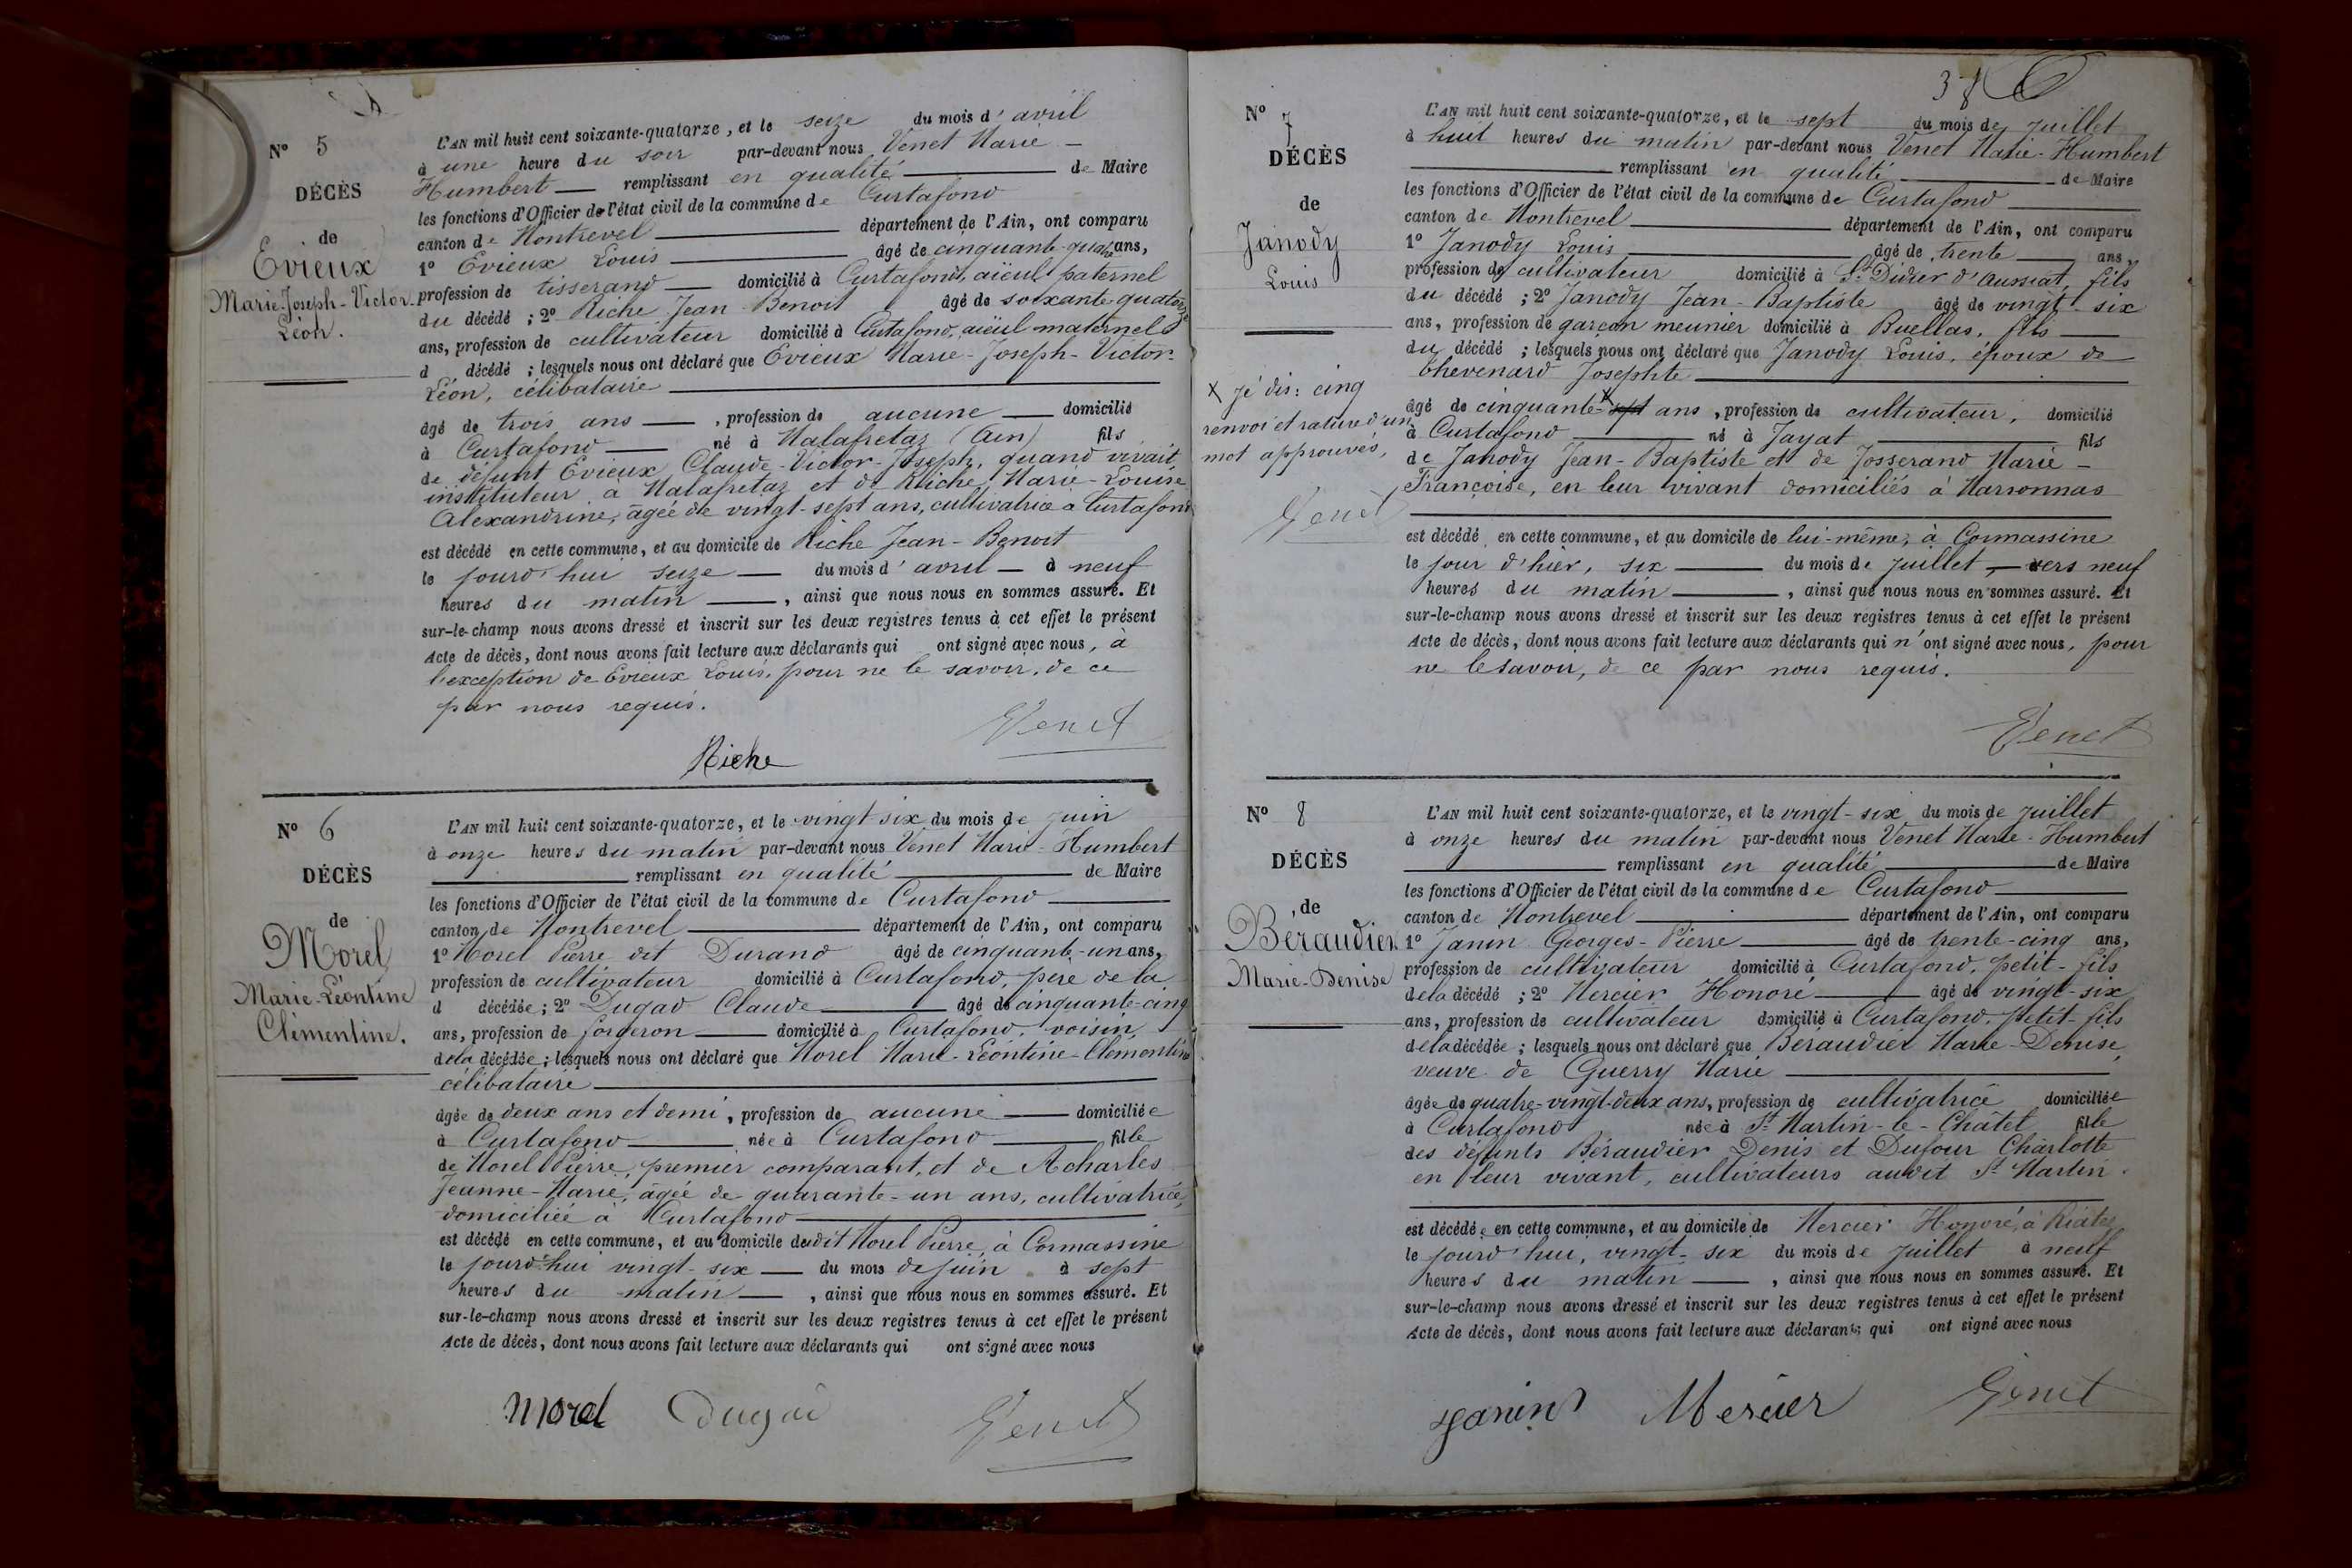 N° 5
DÉCÈS
de
Evieux
Marie-Joseph-Victor-
Léon.
L'AN mil huit cent soixante-quatorze, et le seize du mois d'avril
à une heure du soir par-devant nous Venet Marie-
Humbert remplissant en qualité de Maire
les fonctions d'Officier de l'état civil de la commune de Curtafond
canton de Montrevel département de l'Ain, ont comparu
1° Evieux Louis âgé de cinquante-quatre ans,
profession de tisserand domicilié à Curtafond, aïeul paternel
du décédé ; 2° Riche Jean-Benoit âgé de soixante-quatorze
ans, profession de cultivateur domicilié à Curtafond, aïeul maternel
d décédé ; lesquels nous ont déclaré que Evieux Marie-Joseph-Victor-
Léon, célibataire
âgé de trois ans, profession de aucune domicilié
à Curtafond né à Malafretaz (Ain) fils
de défunt Evieux Claude-Victor-Joseph, quand vivait,
instituteur à Malafretaz et de Riche Marie-Louise
Alexandrine, âgée de vingt-sept ans, cultivatrice à Curtafond
est décédé en cette commune, et au domicile de Riche Jean-Benoit
le jourd'hui seize du mois d'avril à neuf
heures du matin, ainsi que nous nous en sommes assuré. Et
sur-le-champ nous avons dressé et inscrit sur les deux registres tenus à cet effet le présent
Acte de décès, dont nous avons fait lecture aux déclarants qui ont signé avec nous, à
l'exception de Evieux Louis, pour ne le savoir, de ce
par nous requis.
Venet
Riche
N° 6
DÉCÈS
de
Morel
Marie-Léontine
Clémentine.
L'AN mil huit cent soixante-quatorze, et le vingt-six du mois de juin
à onze heures du matin par-devant nous Venet Marie-Humbert
remplissant en qualité de Maire
les fonctions d'Officier de l'état civil de la commune de Curtafond
canton de Montrevel département de l'Ain, ont comparu
1° Morel Pierre dit Durand âgé de cinquante-un ans,
profession de cultivateur domicilié à Curtafond, père de la
d décédée ; 2° Dugad Claude âgé de cinquante-cinq
ans, profession de forgeron domicilié à Curtafond, voisin
de la décédée ; lesquels nous ont déclaré que Morel Marie-Léontine-Clémentine
célibataire
âgée de deux ans et demi, profession de aucune domiciliée
à Curtafond née à Curtafond fille
de Morel Pierre, premier comparant, et de Acharles
Jeanne-Marie, âgée de quarante-un ans, cultivatrice,
domiciliée à Curtafond
est décédé en cette commune, et au domicile dudit Morel Pierre, à Cormassine
le jourd'hui vingt-six du mois de juin à sept
heures du matin, ainsi que nous nous en sommes assuré. Et
sur-le-champ nous avons dressé et inscrit sur les deux registres tenus à cet effet le présent
Acte de décès, dont nous avons fait lecture aux déclarants qui ont signé avec nous
Morel Dugad Venet
38
N° 7
DÉCÈS
de
Janody
Louis
X Jé dis : cinq
renvoi et rature d'un
mot approuvés,
Venet
L'AN mil huit cent soixante-quatorze, et le sept du mois de juillet
à huit heures du matin par-devant nous Venet Marie-Humbert
remplissant en qualité de Maire
les fonctions d'Officier de l'état civil de la commune de Curtafond
canton de Montrevel département de l'Ain, ont comparu
1° Janody Louis âgé de trente ans,
profession de cultivateur domicilié à St Didier d'Aussiat, fils
du décédé ; 2° Janody Jean-Baptiste âgé de vingt-six
ans, profession de garçon meunier domicilié à Buellas, fils
du décédé ; lesquels nous ont déclaré que Janody Louis, époux de
Chevenard Josephte
âgé de cinquante-X sept ans, profession de cultivateur, domicilié
à Curtafond né à Jayat fils
de Janody Jean-Baptiste et de Josserand Marie-
Françoise, en leur vivant domiciliés à Marsonnas
est décédé en cette commune, et au domicile de lui-même, à Cormassine
le jour d'hier, six du mois de juillet, vers neuf
heures du matin, ainsi que nous nous en sommes assuré. Et
sur-le-champ nous avons dressé et inscrit sur les deux registres tenus à cet effet le présent
Acte de décès, dont nous avons fait lecture aux déclarants qui n'ont signé avec nous, pour
ne le savoir, de ce par nous requis.
Venet
N° 8
DÉCÈS
de
Béraudier
Marie-Denise
L'AN mil huit cent soixante-quatorze, et le vingt-six du mois de juillet
à onze heures du matin par-devant nous Venet Marie-Humbert
remplissant en qualité de Maire
les fonctions d'Officier de l'état civil de la commune de Curtafond
canton de Montrevel département de l'Ain, ont comparu
1° Janin Georges-Pierre âgé de trente-cinq ans,
profession de cultivateur domicilié à Curtafond, petit-fils
de la décédé ; 2° Mercier Honoré âgé de vingt-six
ans, profession de cultivateur domicilié à Curtafond, petit-fils
de la décédée ; lesquels nous ont déclaré que Béraudier Marie-Denise,
veuve de Guerry Marie
âgée de quatre-vingt-deux ans, profession de cultivatrice domiciliée
à Curtafond née à St Martin-le-Châtel fille
des défunts Béraudier Denis et Dufour Charlotte
en leur vivant, cultivateurs audit St Martin.
est décédée en cette commune, et au domicile de Mercier Honoré, à Riatez
le jourd'hui, vingt-six du mois de juillet à neuf
heures du matin, ainsi que nous nous en sommes assuré. Et
sur-le-champ nous avons dressé et inscrit sur les deux registres tenus à cet effet le présent
Acte de décès, dont nous avons fait lecture aux déclarants qui ont signé avec nous
Janin Mercier Venet